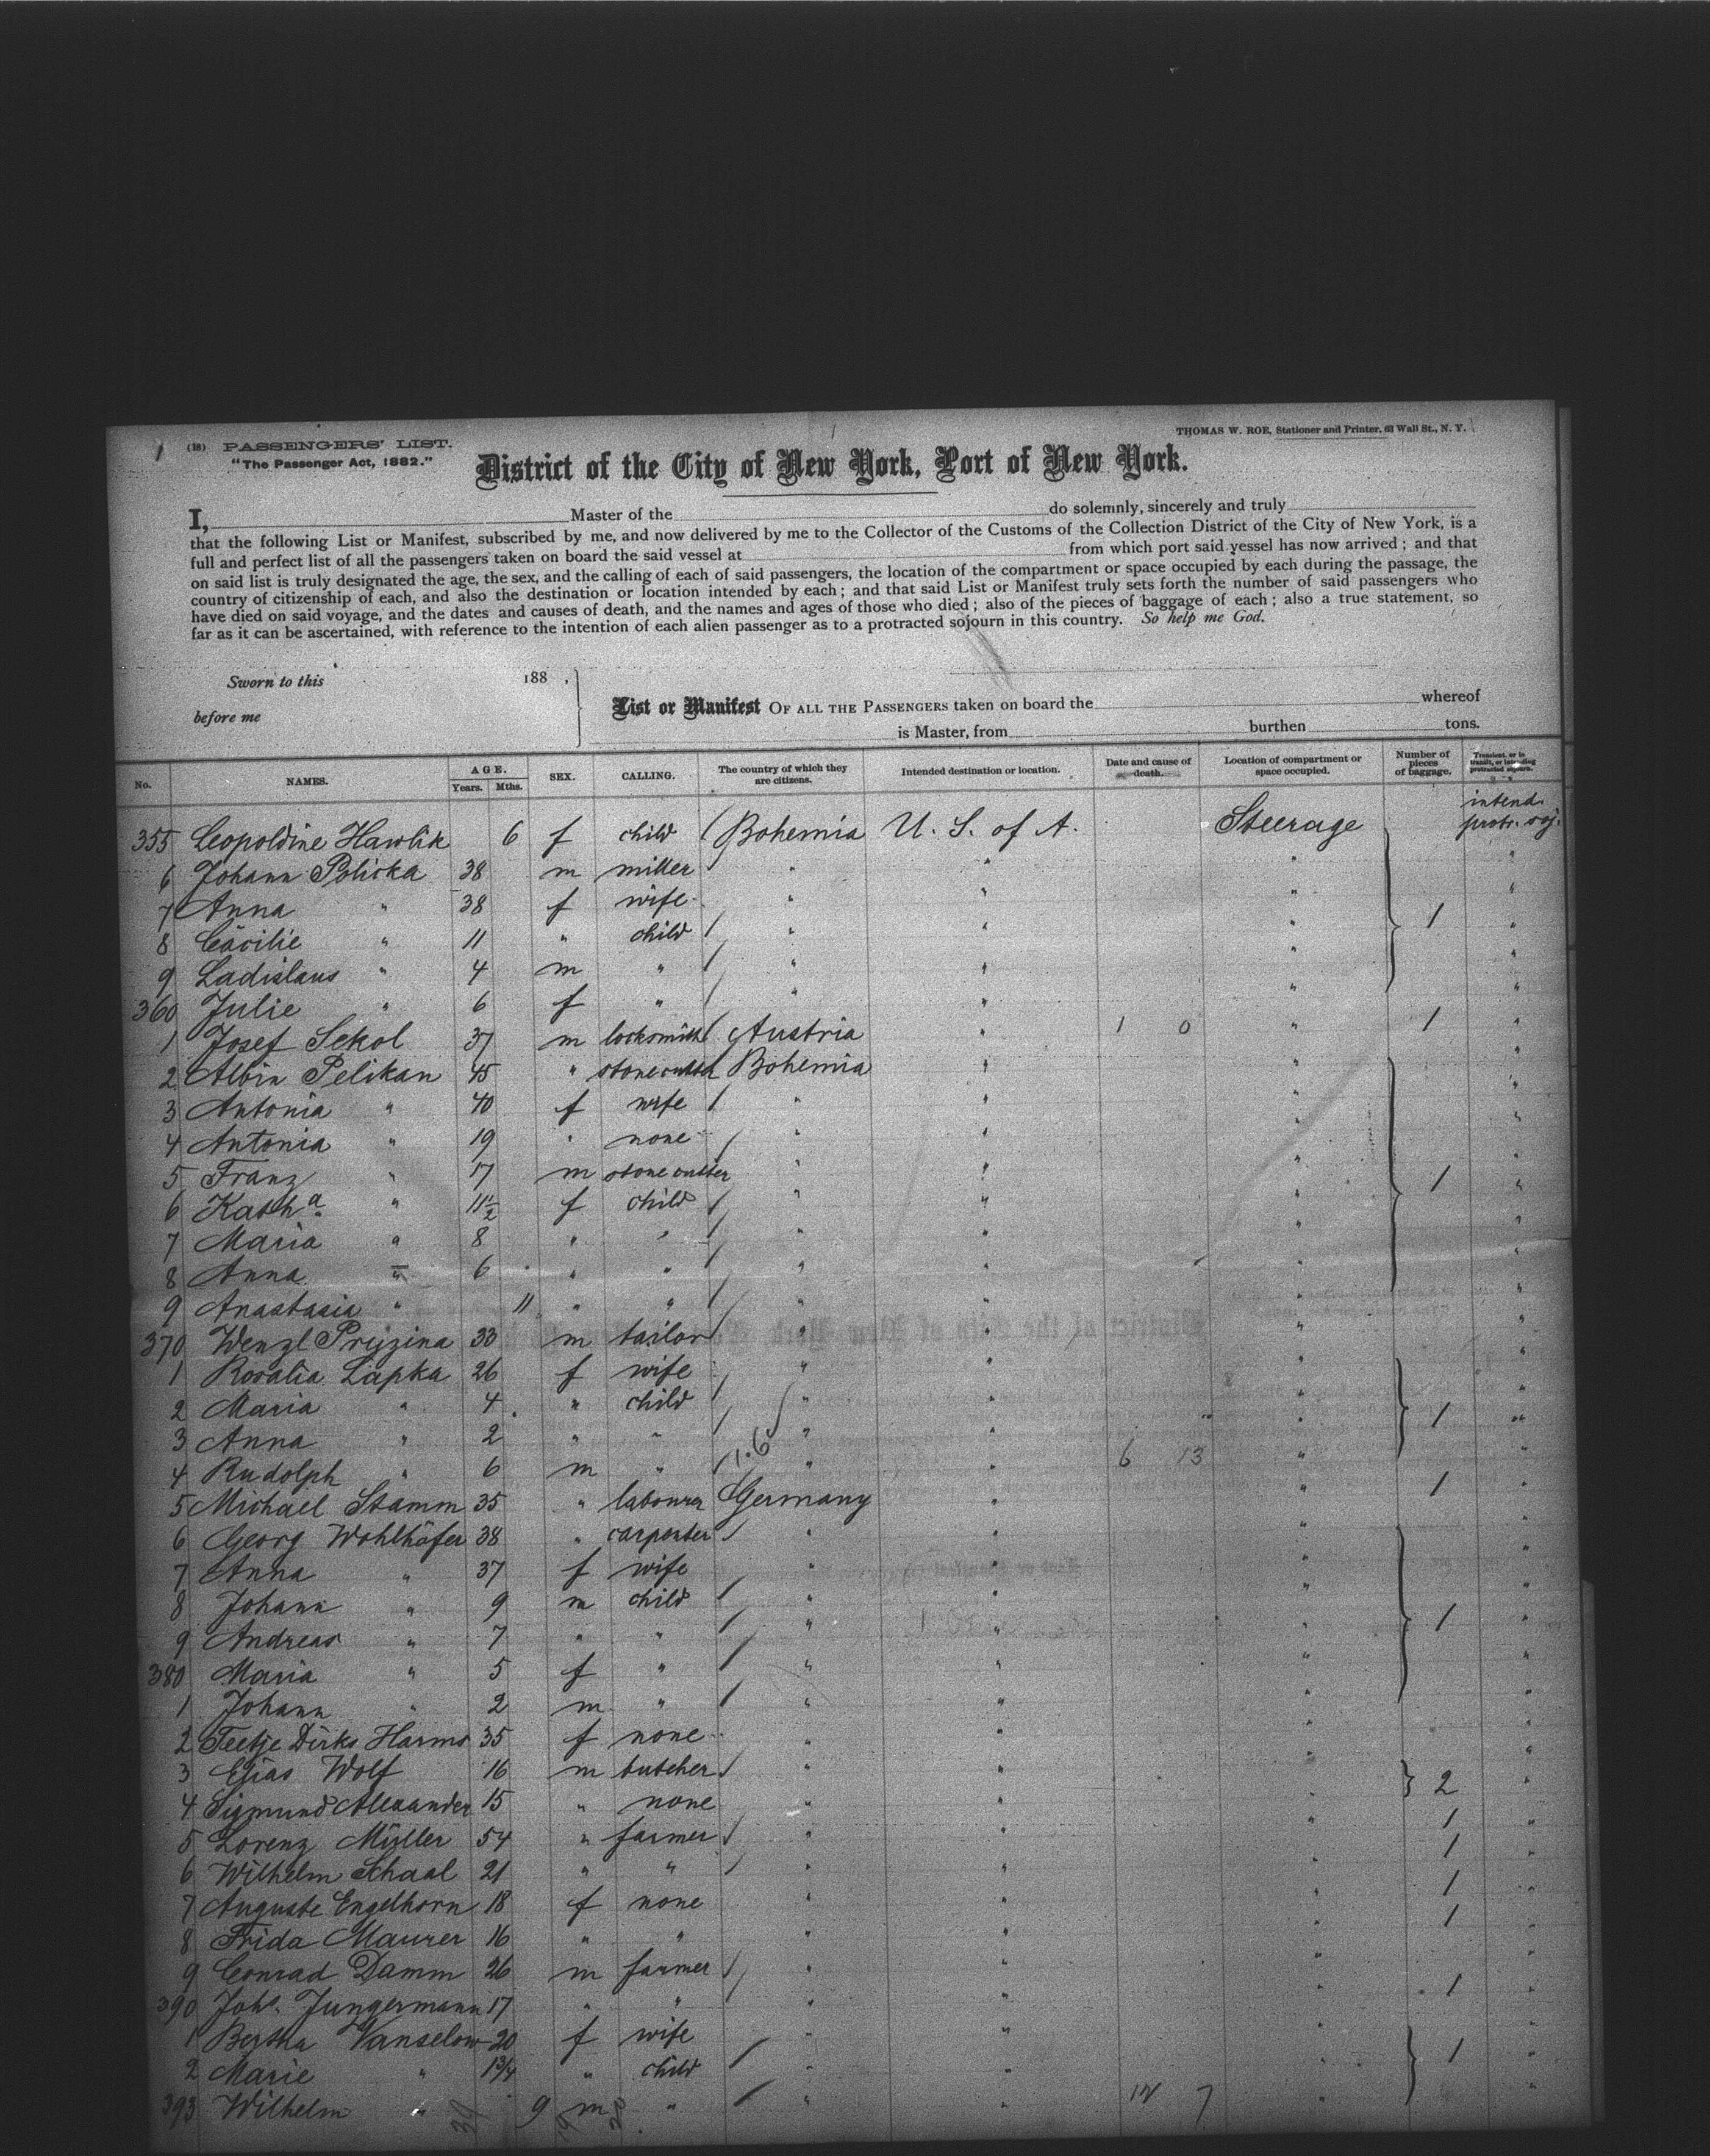 1 (18) PASSENGERS' LIST.
THOMAS W. ROE, Stationer and Printer, 63 Wall St., N. Y.
"The Passenger Act, 1882."
District of the City of New York, Port of New York.
I, Master of the do solemnly, sincerely and truly
that the following List or Manifest, subscribed by me, and now delivered by me to the Collector of the Customs of the Collection District of the City of New York, is a
full and perfect list of all the passengers taken on board the said vessel at from which port said vessel has now arrived; and that
on said list is truly designated the age, the sex, and the calling of each of said passengers, the location of the compartment or space occupied by each during the passage, the
country of citizenship of each, and also the destination or location intended by each; and that said List or Manifest truly sets forth the number of said passengers who
have died on said voyage, and the dates and causes of death, and the names and ages of those who died; also of the pieces of baggage of each; also a true statement, so
far as it can be ascertained, with reference to the intention of each alien passenger as to a protracted sojourn in this country. So help me God.
Sworn to this 188 .
before me
List or Manifest OF ALL THE PASSENGERS taken on board the whereof
is Master, from burthen tons.
No. NAMES. AGE. Years. Mths. SEX. CALLING. The country of which they are citizens. Intended destination or location. Date and cause of death. Location of compartment or space occupied. Number of pieces of baggage. Transient, or in transit, or intending protracted sojourn.
355 Leopoldine Hawlik 6 f child Bohemia U. S. of A. Steerage intend. protr. soj.
6 Johann Policka 38 m miller " " " "
7 Anna " 38 f wife " " " "
8 Cäcilie " 11 " child " " " 1 "
9 Ladislaus " 4 m " " " " "
360 Julie " 6 f " " " " "
1 Josef Sekol 37 m locksmith Austria " 1 0 " 1 "
2 Albin Pelikan 45 " stonecutter Bohemia " " "
3 Antonia " 40 f wife " " " "
4 Antonia " 19 " none " " " "
5 Franz " 17 m stone cutter " " " 1 "
6 Katha " 11½ f child " " " "
7 Maria " 8 " " " " " "
8 Anna " 6 " " " " " "
9 Anastasia " 11 " " " " " "
370 Wenzl Pryzina 33 m tailor " " " "
1 Rosalia Lapka 26 f wife " " " "
2 Maria " 4 " child " " " 1 "
3 Anna " 2 " " " " " "
4 Rudolph " 6 m " " " 6 13 " "
5 Michael Stamm 35 " labourer Germany " " 1 "
6 Georg Wohlhöfer 38 " carpenter " " " "
7 Anna " 37 f wife " " " "
8 Johann " 9 m child " " " "
9 Andreas " 7 " " " " " 1 "
380 Maria " 5 f " " " " "
1 Johann " 2 m " " " " "
2 Teetje Dirks Harms 35 f none " " " "
3 Elias Wolf 16 m butcher " " " 2 "
4 Sigmund Alexander 15 " none " " " "
5 Lorenz Müller 54 " farmer " " " 1 "
6 Wilhelm Schaal 21 " " " " " 1 "
7 Auguste Engelhorn 18 f none " " " 1 "
8 Frida Maurer 16 " " " " " 1 "
9 Conrad Damm 26 m farmer " " " "
390 Johs. Jungermann 17 " " " " " 1 "
1 Bertha Vanselow 20 f wife " " " "
2 Marie " 1¾ " child " " " 1 "
393 Wilhelm " 9 m " " " 14 7 " "